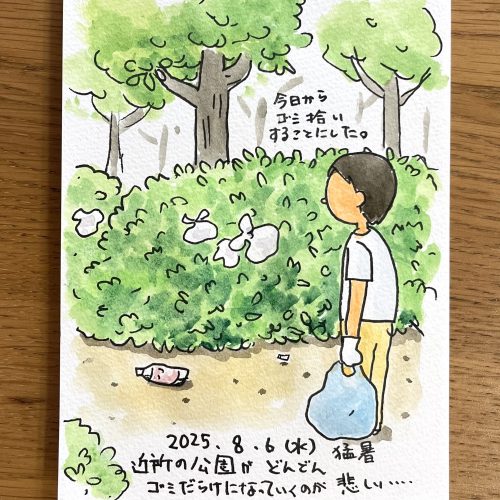 今日から
ゴミ拾い
することにした。
2025.8.6(水) 猛暑
近所の公園がどんどん
ゴミだらけになっていくのが悲しい....